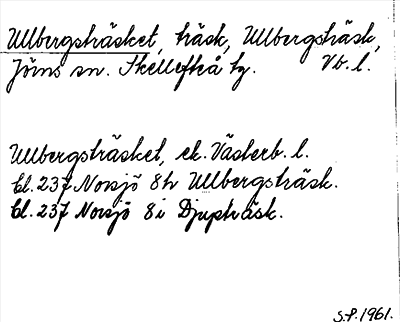 Ullbergsträsket, träsk, Ullbergsträsk,
Jörns sn. Skellefteå tg. Vb. l.
Ullbergsträsket, ek. Västerb. l.
bl. 237 Norsjö 8h Ullbergsträsk.
bl. 237 Norsjö 8i Djupträsk.
S.P. 1961.